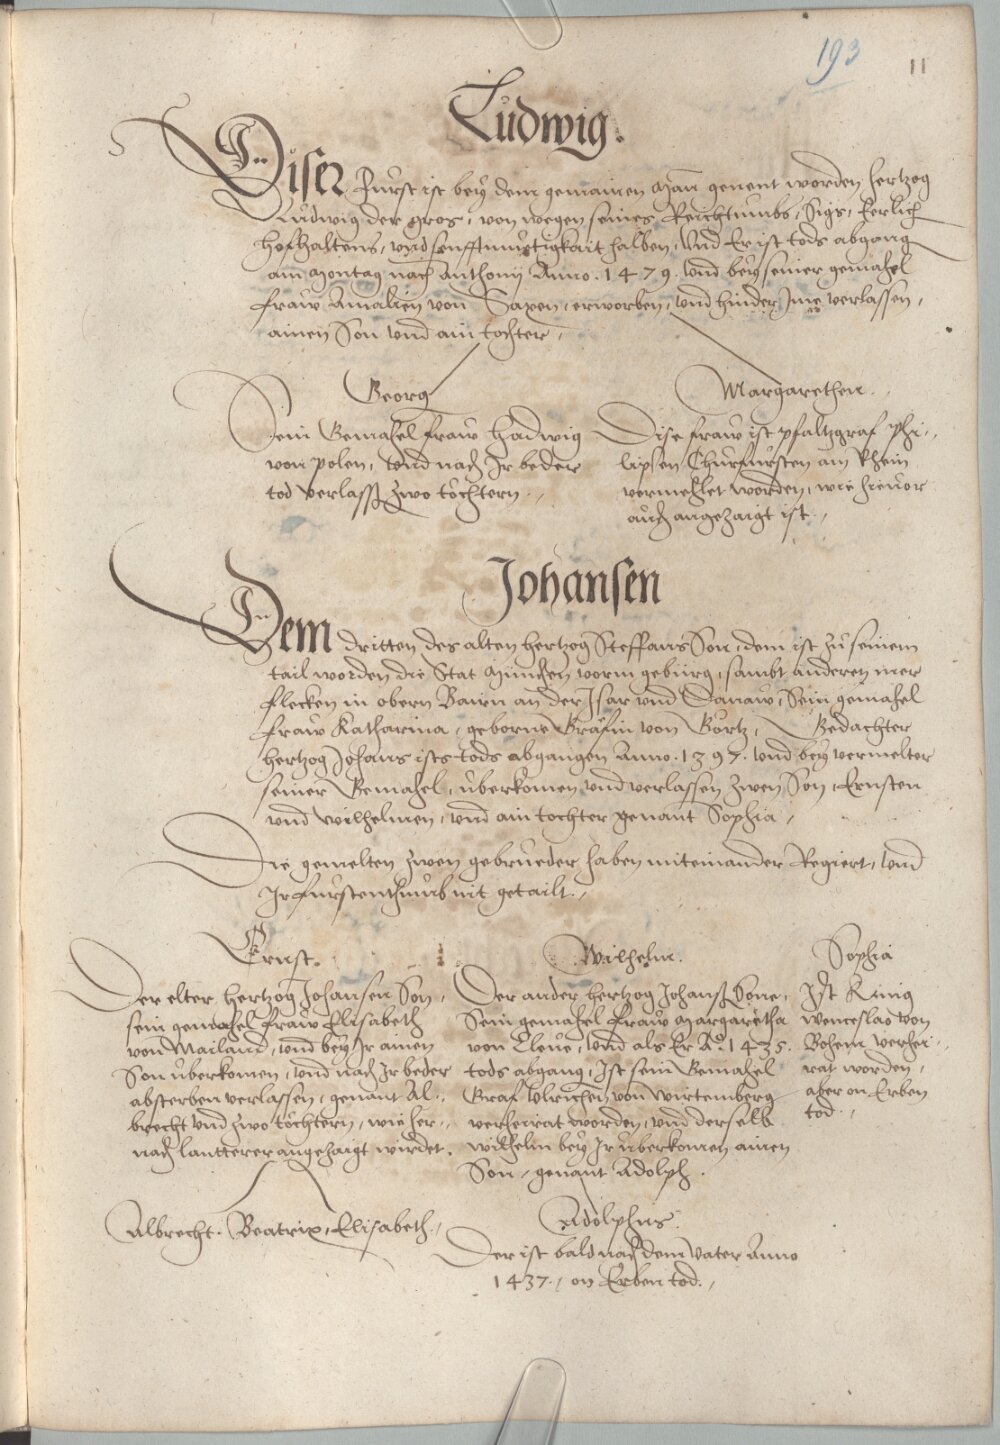 193
11
Ludwig.
Diser Fürst ist bey dem gemainen Man genent worden hertzog
Ludwig der gros, von wegen seines Reichtumbs, Sigs, Eerlich
Hofhaltens, und senfftmuetigkait halben, Und Er ist tods abgang
am Montag nach Anthonij Anno. 1479. und bey seiner gemahel
fraw Amalien von Saxen, erworben, und hinder Ime verlassen,
ainen Son und ain tochter,
Georg
Sein Gemahel fraw Hadwig
von Polen, Und nach Ir beder
tod verlassn zwo töchtern.
Margarethen.
Dise fraw ist pfaltzgraf Phi-
lipsen Churfürsten am Rhein
vermehlet worden, wie hievor
auch angezaigt ist.
Johansen
Dem dritten des alten hertzog Steffans Son, dem ist zu seinem
tail worden die Stat München vorm gebürg, sambt anderen mer
flecken in obern Bairn an der Isar und Danaw, Sein gemahel
fraw Katharina, geborne Gräfin von Görtz, Gedachter
hertzog Johans ists tods abgangen Anno. 1397. und bey vermelter
seiner Gemahel, überkomen und verlassen zwen Son, Ernsten
und Wilhelmen, und ain tochter genant Sophia,
Die gemelten zwen gebrueder haben miteinander Regiert, und
Ir furstenthumb nit getailt.
Ernst.
Der elter hertzog Johansen Son,
sein gemahel fraw Elisabeth
von Mailand, und bey Ir ainen
Son uberkomen, und nach Ir beder
absterben verlassen, genant Al-
brecht und zwo töchtern, wie her-
nach lautterer angezaigt wirdet.
Wilhelm.
Der ander hertzog Johanß Sone,
Sein gemahel fraw Margaretha
von Cleve, Und als Er Ao. 1435.
tods abgang, Ist sein Gemahel
Graf Ulrichen von Wirtemberg
verheirat worden, und derselb
Wilhelm bey Ir uberkomen ainen
Son, genant Adolph.
Sophia
Ist Kunig
Wenceslao von
Bohem verhei-
rat worden,
aber on Erben
tod.
Albrecht. Beatrix, Elisabeth,
Adolphus.
Der ist bald nach dem Vater Anno
1437. on Erben tod.